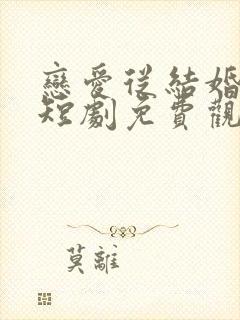 戀愛從結婚
短劇免費觀
莫離